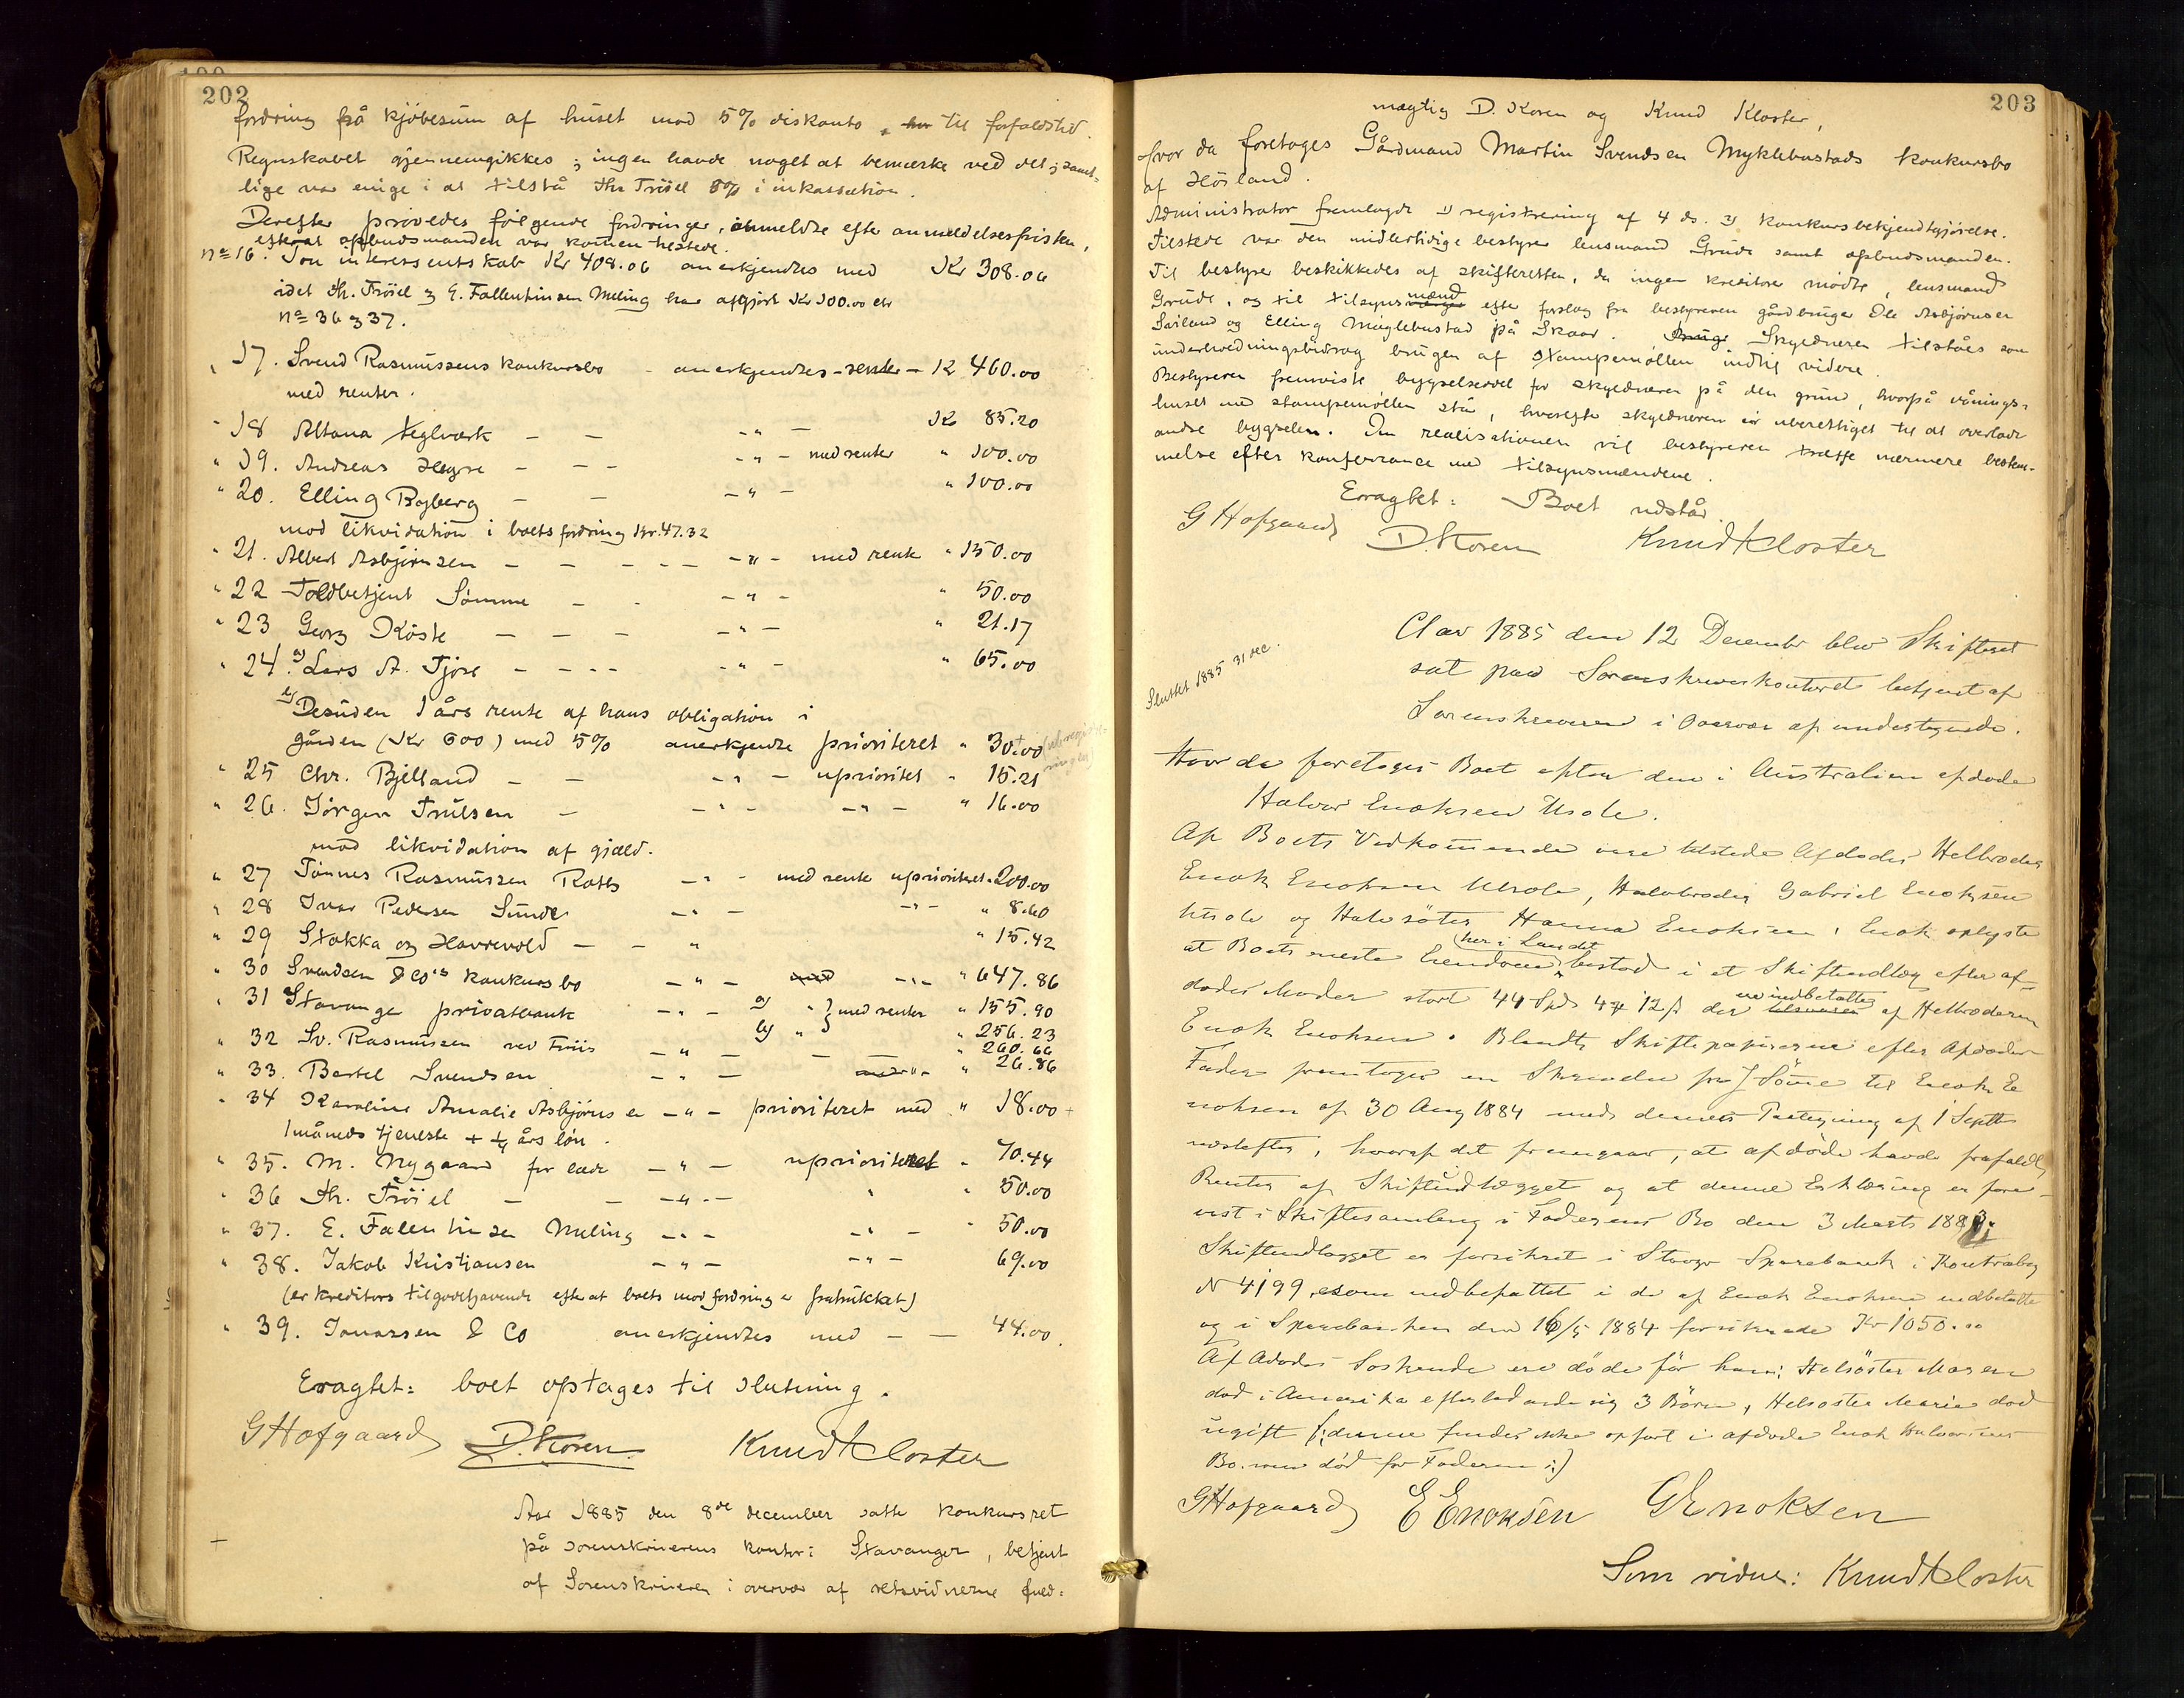 202
fordring på kjöbesum af huset mod 5% diskonto, til forfaldstid.
Regnskabet gjennemgikkes; ingen havde noget at bemærke ved det; samt-
lige var enige i at tilstå Th. Tröiel 8% i inkassation.
Derefter prövedes fölgende fordringer, anmeldte efter anmeldelsesfristen,
efterat opbudsmanden var kommen tilstede.
nº 16. Ton interessentskab Kr 408.06 anerkjendtes med Kr 308.06
idet Th. Tröiel & E. Fallentinsen Meling har afgjort Kr 100.00 cfr
nº 36 & 37.
" 17. Svend Rasmussens konkursbo - anerkjendtes - - K 460.00
med renter.
" 18 Altona teglværk - - - " - K 85.20
" 19. Andreas Hegre - - - - " - med renter " 100.00
" 20. Elling Rygberg - - - " - " 100.00
mod likvidation i boets fordring Kr. 47.32
" 21. Albert Asbjörnsen - - - - - - " - med rente " 150.00
" 22 Toldbetjent Sömme - - - " - " 50.00
" 23 Georg Köste - - - - " - " 21.17
" 24. a) Lars A. Tjöse - - - - - " - " 65.00
b) Desuden 1 års rente af hans obligation i
gården (Kr 600) med 5% anerkjendte prioriteret " 30.00
" 25 Chr. Bjelland - - - " - uprioritet " 15.21
" 26. Jörgen Trulsen - - " - - " - " 16.00
mod likvidation af gjæld.
" 27 Tönnes Rasmussen Rott - " - med rente uprioriteret " 200.00
" 28 Ivar Pedersen Sunde - " - - " - " 8.60
" 29 Stokka og Havrevold - - " " 15.42
" 30 Svendsen & Co's konkursbo - " - - " - " 647.86
" 31 Stavanger privatbank - " - a) " } med renter " 155.90
b) " } " 256.23
" 32 Sv. Rasmussen ved Friis - " - - - " 260.66
" 33. Bertel Svendsen - " - " 26.86
" 34 Karoline Amalie Asbjörnsen - " - prioriteret med " 18.00
1 måneds tjeneste + ¼ års lön.
" 35. M. Nygaard for læde - " - uprioriteret " 70.44
" 36 Th. Tröiel - - - " - " " 50.00
" 37. E. Fallentinsen Meling - " - - " - " 50.00
" 38. Jakob Kristjansen - " - - " - 69.00
(er kreditors tilgodehavende efterat boets modfordring er fratrukket)
" 39. Jonassen & Co anerkjendtes med - - 44.00.
Eragtet: boet optages til slutning.
G Hofgaard D. Koren. Knud Kloster
Aar 1885 den 8de december sattes konkursret
på sorenskriverens kontor i Stavanger, betjent
af Sorenskriveren i overvær af retsvidnerne fuld-
203
mægtig D. Koren og Knud Kloster,
hvor da foretoges Gårdmand Martin Svendsen Myklebustads konkursbo
af Hösland.
Administrator fremlagde 1) registrering af 4 ds. 2) konkursbekjendtgjörelse.
Tilstede var den midlertidige bestyrer lensmand Grude samt opbudsmanden.
Til bestyrer beskikkedes af skifteretten, da ingen kreditor mödte, lensmand
Grude, og til tilsynsmænd efter forslag fra bestyreren gårdbruger Ole Asbjörnsen
Sæland og Elling Myglebustad på Skaar. Skyldneren tilståes som
underholdningsbidrag brugen af Stampemöllen indtil videre.
Bestyreren fremviste bygselseddel for skyldneren på den grund, hvorpå vånings-
huset med stampemöllen står, hvorefter skyldneren er uberettiget til at overlade
andre bygselen. Om realisationen vil bestyreren træffe nærmere bestem-
melse efter konferrance med tilsynsmændene.
Eragtet: Boet udstår.
G Hofgaard D. Koren Knud Kloster
Sluttet 1885 31 dec.
Aar 1885 den 12 December blev Skifteret
sat paa Sorenskriverkontoret betjent af
Sorenskriveren i Overvær af undertegnede.
Hvor da foretoges Boet efter den i Australien afdöde
Halvor Enoksen Usole.
Af Boets Vedkommende vare tilstede Afdödes Helbroder
Enok Enoksen Usole, Halvbroder Gabriel Enoksen
Usole og Halvsöster Hanna Enoksen. Enok oplyste
at Boets eneste Eiendom her i Landet bestod i et Skifteudlæg efter af-
dödes Moder stort 44 Spd 4 12 ß der er indbetalte af Helbroderen
Enok Enoksen. Blandt Skiftepapirerne efter Afdödes
Fader fremtoges en Skrivelse fra J Söme til Enok E
noksen af 30 Aug 1884 med dennes Paategning af 1 Septbr
næstefter, hvoraf det fremgaar, at afdöde havde frafaldt
Renter af Skifteudlægget og at denne Erklæring er fore-
vist i Skiftesamling i Faderens Bo den 3 Marts
Skifteudlægget er forsikret i Stavgr Sparebank i Kontrabog
N 4199, som indbefattet i de af Enok Enoksen indbetalte
og i Sparebanken den 16/5 1884 forsikrede Kr 1050.00
Af Afdödes Söskende ere döde för ham: Helsöster Maren
död i Amerika efterladende sig 3 Börn, Helsöster Marie död
ugift (: denne findes ikke opfört i afdöde Enok Halvorsens
Bo. men död för Faderen :)
G Hofgaard E Enoksen G Enoksen
Som vidne: Knud Kloster